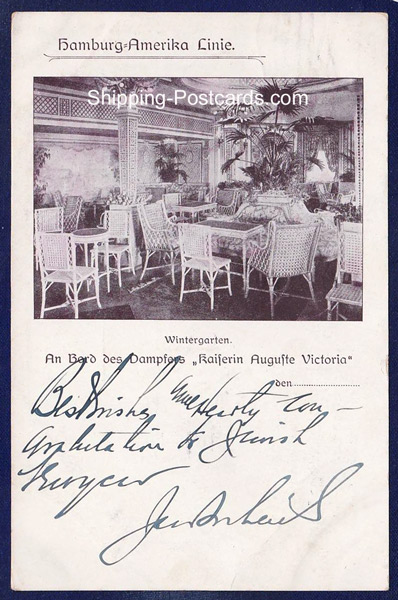 Hamburg-Amerika Linie.
Shipping-Postcards.com
Wintergarten.
An Bord des Dampfers „Kaiserin Auguste Victoria“
den
Best wishes and Hearty Con-
gratulation to Jewish